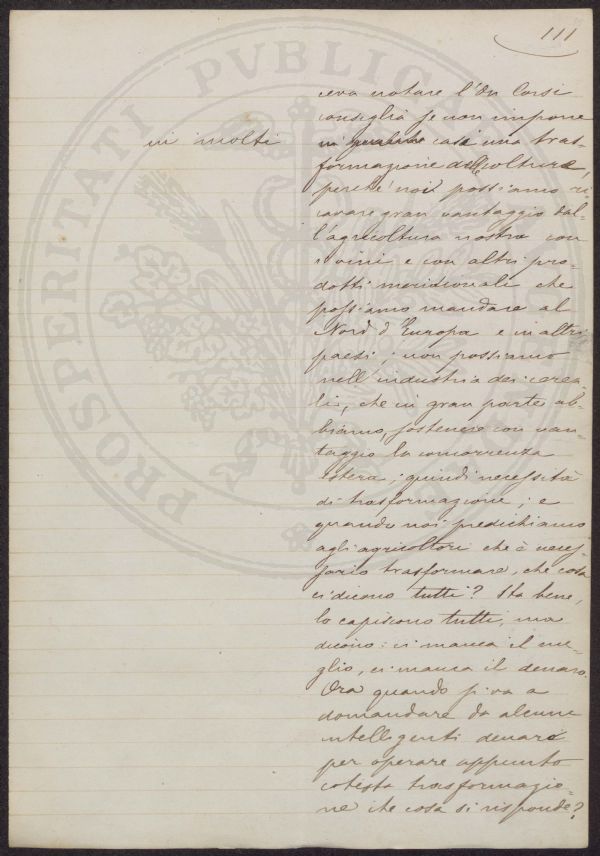 111
PROSPERITATI PVBLICAE
in molti
ceva notare l'On Corsi
consiglia se non impone
in qualche casi una tras-
formazione delle colture,
perché noi possiamo ri-
cavare gran vantaggio dal-
l'agricoltura nostra con
i vini e con altri pro-
dotti meridionali che
possiamo mandare al
Nord d'Europa e in altri
paesi; non possiamo
nell'industria dei cerea-
li, che in gran parte ab-
biamo, sostenere con van-
taggio la concorrenza
estera; quindi necessità
di trasformazione; e
quando noi predichiamo
agli agricoltori che è neces-
sario trasformare, che cosa
ci dicono tutti? Sta bene,
lo capiscono tutti, ma
dicono: ci manca il me-
glio, ci manca il denaro.
Ora quando si va a
domandare da alcune
intelligenti denaro
per operare appunto
cotesta trasformazio-
ne che cosa si risponde?